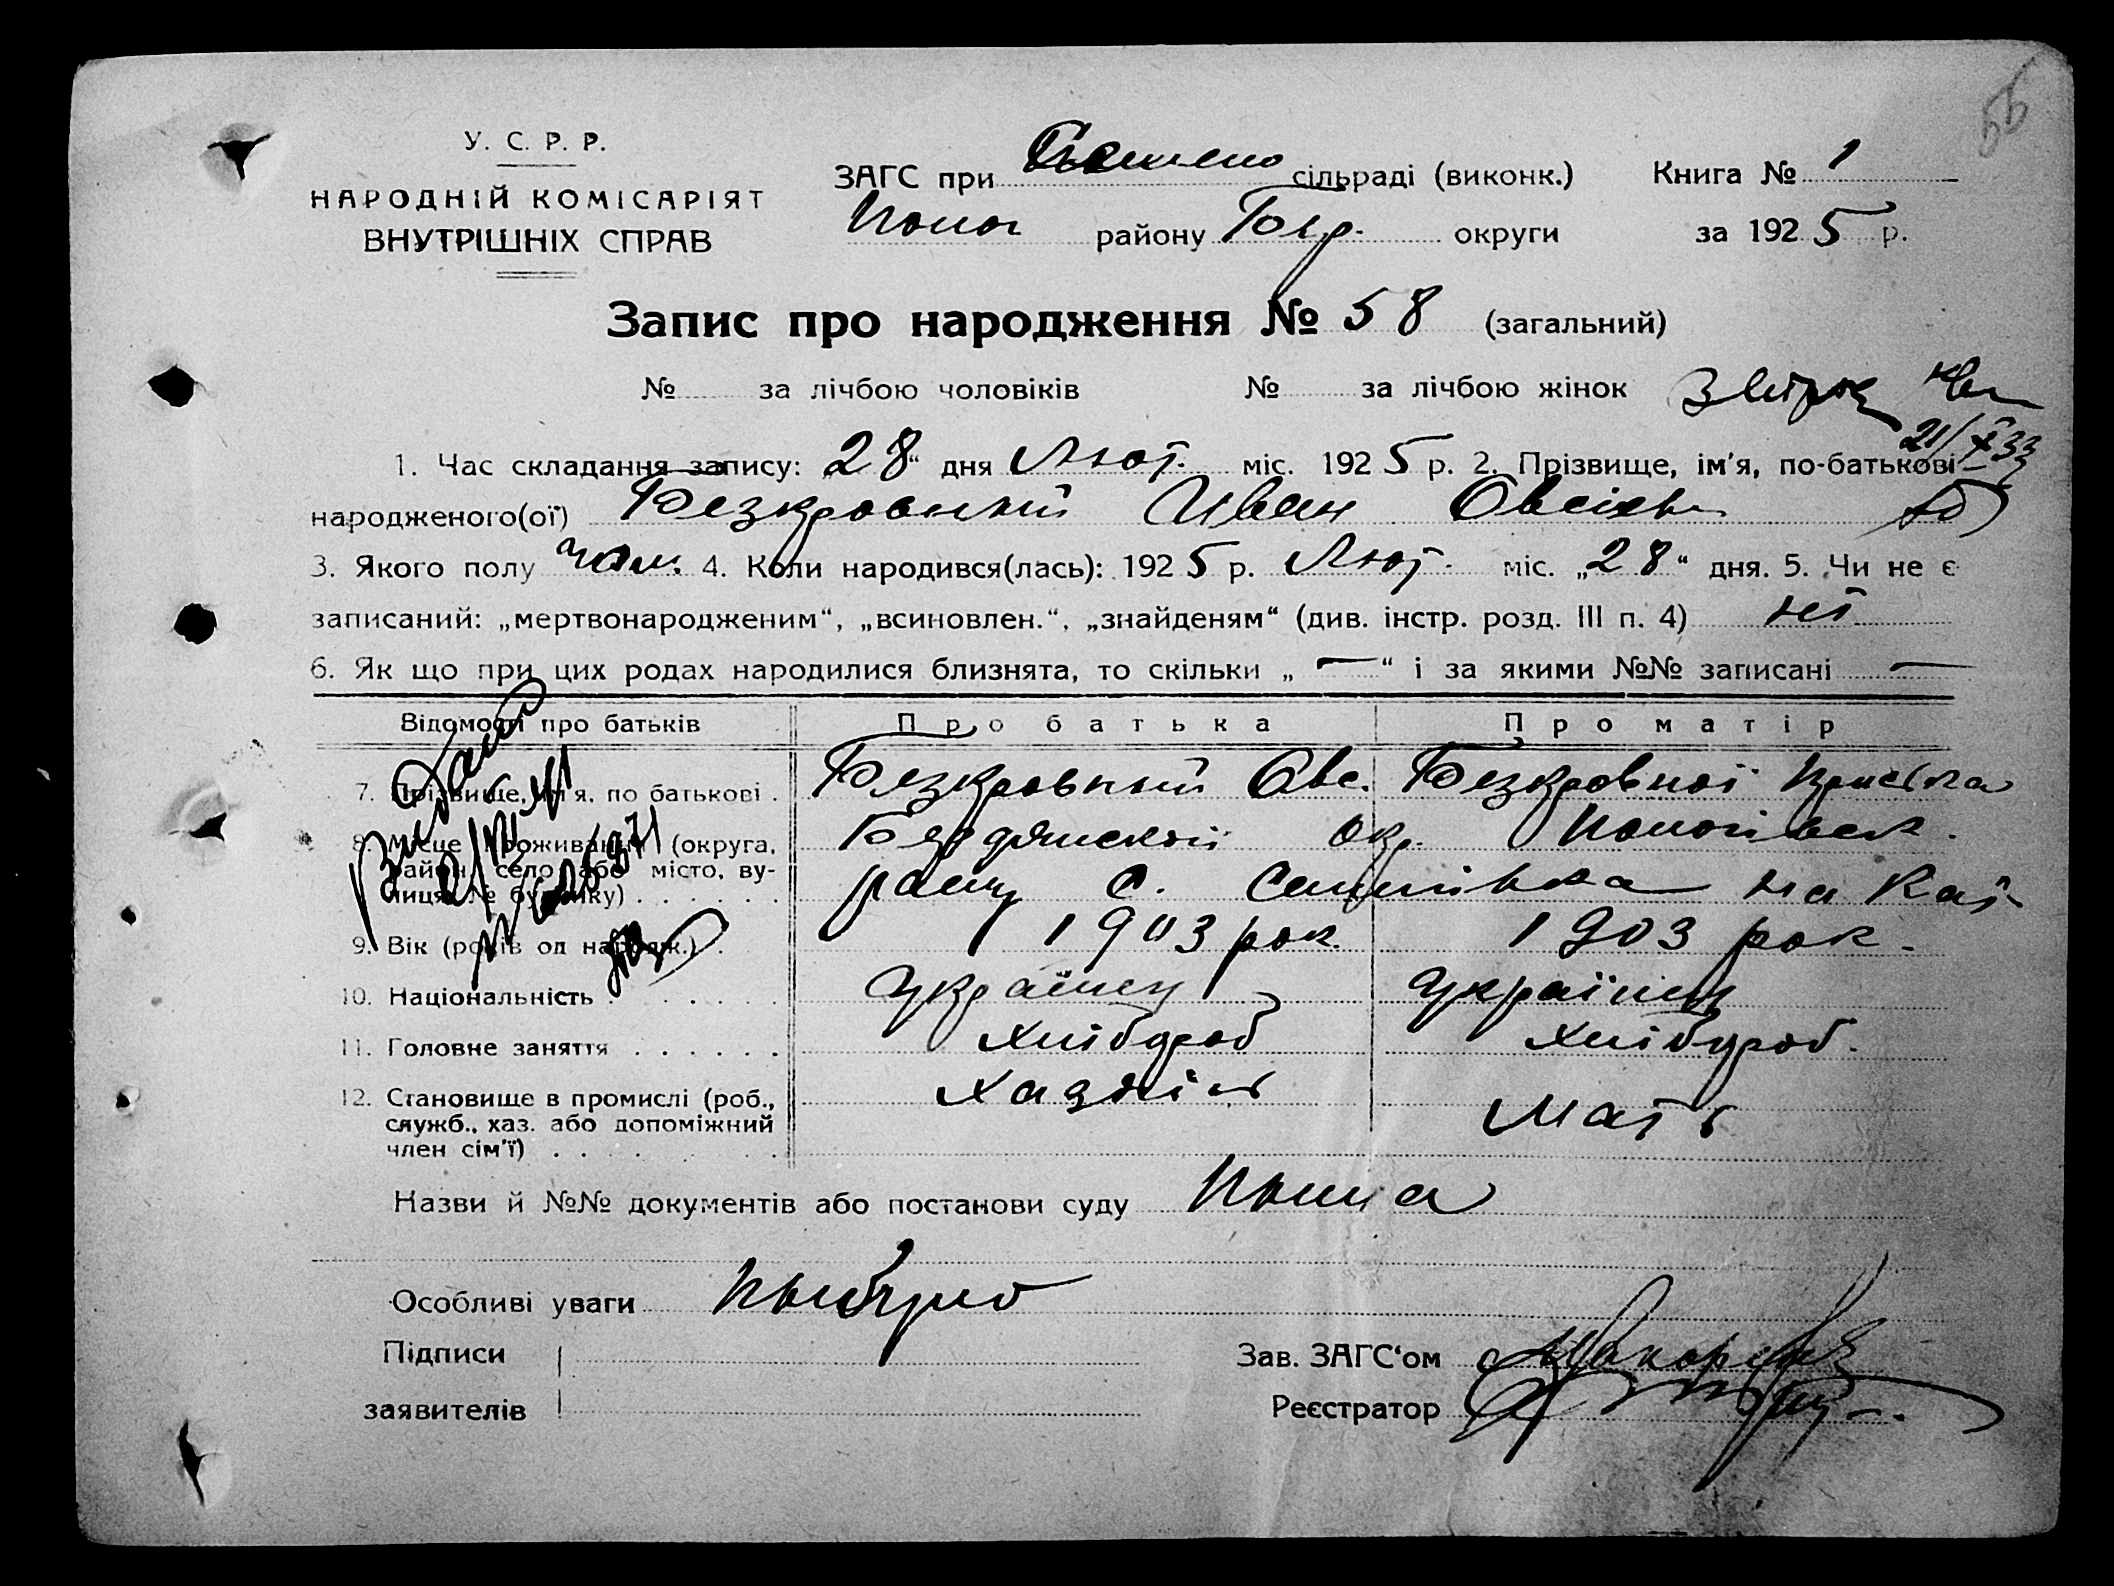 бб
У. С. Р. Р.
НАРОДНІЙ КОМІСАРІЯТ
ВНУТРІШНІХ СПРАВ
ЗАГС при сільраді (виконк.) Книга № 1
Полог району Бер. округи за 1925 р.
Запис про народження № 58 (загальний)
№ за лічбою чоловіків № за лічбою жінок
21/X 33
1. Час складання запису: „28“ дня Лют. міс. 1925 р. 2. Прізвище, ім'я, по-батькові
народженого(ої) Безкровний Иван Овсієв.
3. Якого полу чол. 4. Коли народився(лась): 1925 р. Лют. міс. „28“ дня. 5. Чи не є
записаний: „мертвонародженим“, „всиновлен.“, „знайденям“ (див. інстр. розд. III п. 4) ні
6. Як що при цих родах народилися близнята, то скільки „—“ і за якими №№ записані —
Відомості про батьків Про батька Про матір
7. Прізвище, ім'я, по батькові . Безкровний Овс. Безкровної Приська
8. Місце проживання (округа, Бердянської окр. Пологівськ.
район, село або місто, вулиця, № будинку) . . . . . . . раену с.
9. Вік (років од народж.) . 1903 рок. 1903 рок.
10. Національність . . . . . . . Українец Україинц
11. Головне заняття . . . . . . Хлібороб Хлібороб.
12. Становище в промислі (роб., Хазяін Мать
служб., хаз. або допоміжний
член сім'ї) . . . . . . .
Видано
Назви й №№ документів або постанови суду
Особливі уваги
Підписи
заявителів
Зав. ЗАГС'ом
Реєстратор